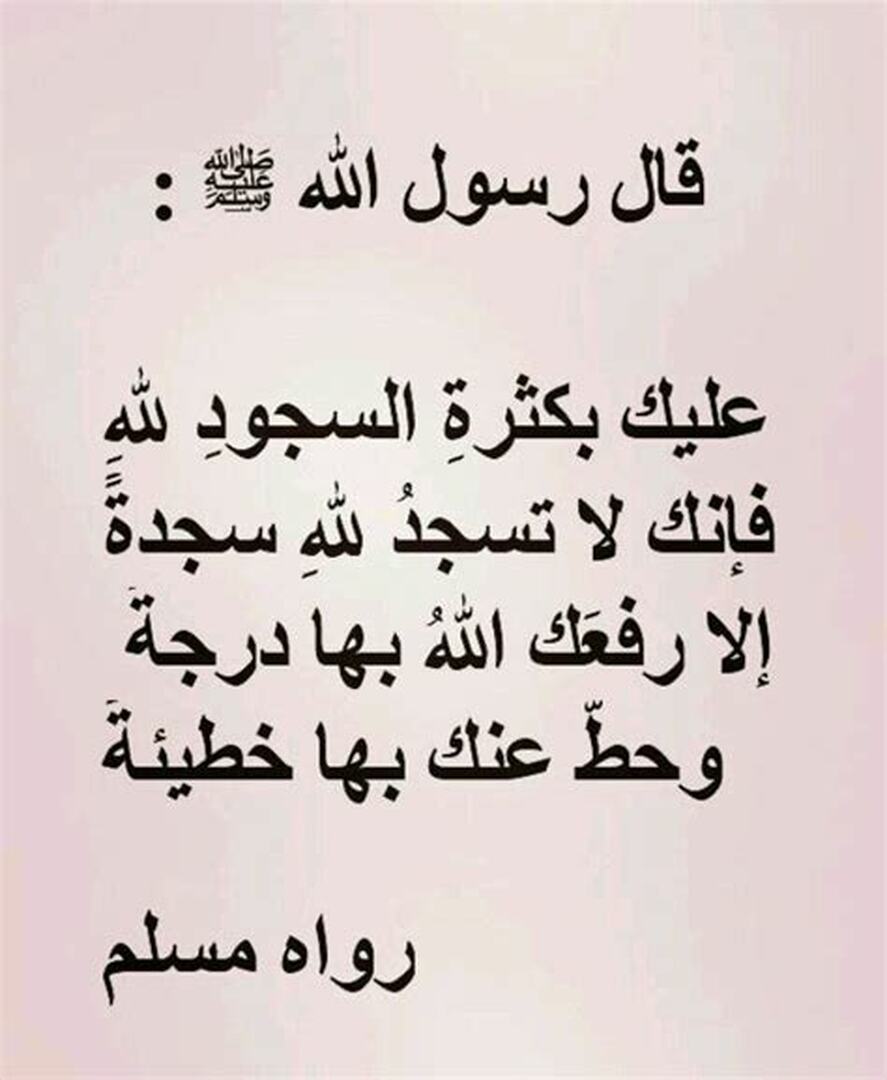 قال رسول الله ﷺ :
عليك بكثرةِ السجودِ للهِ
فإنك لا تسجدُ للهِ سجدةً
إلا رفعَك اللهُ بها درجةَ
وحطّ عنك بها خطيئةَ
رواه مسلم